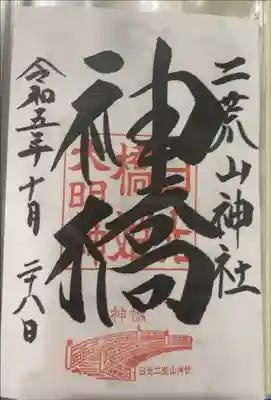 二荒山神社
神橋
令和五年十月二十八日
神橋
日光二荒山神社